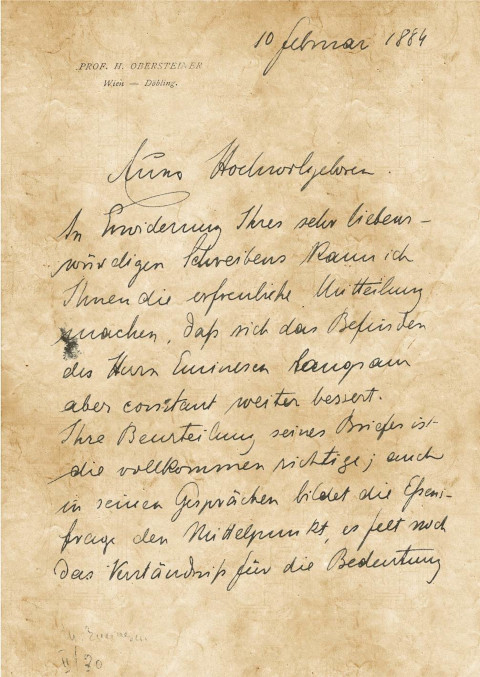 10 februar 1884
PROF. H. OBERSTEINER
Wien — Döbling.
Hochwolgeboren.
In Erwiderung Ihres sehr liebens-
würdigen Schreibens kann ich
Ihnen die erfreuliche Mitteilung
machen, daß sich das Befinden
des Herrn Eminescu langsam
aber constant weiter bessert.
Ihre Beurteilung seines Briefes ist
die vollkommen richtige; auch
in seinen Gesprächen bildet die
frage den Mittelpunkt, es felt noch
das Verständniß für die Bedeutung
II/30